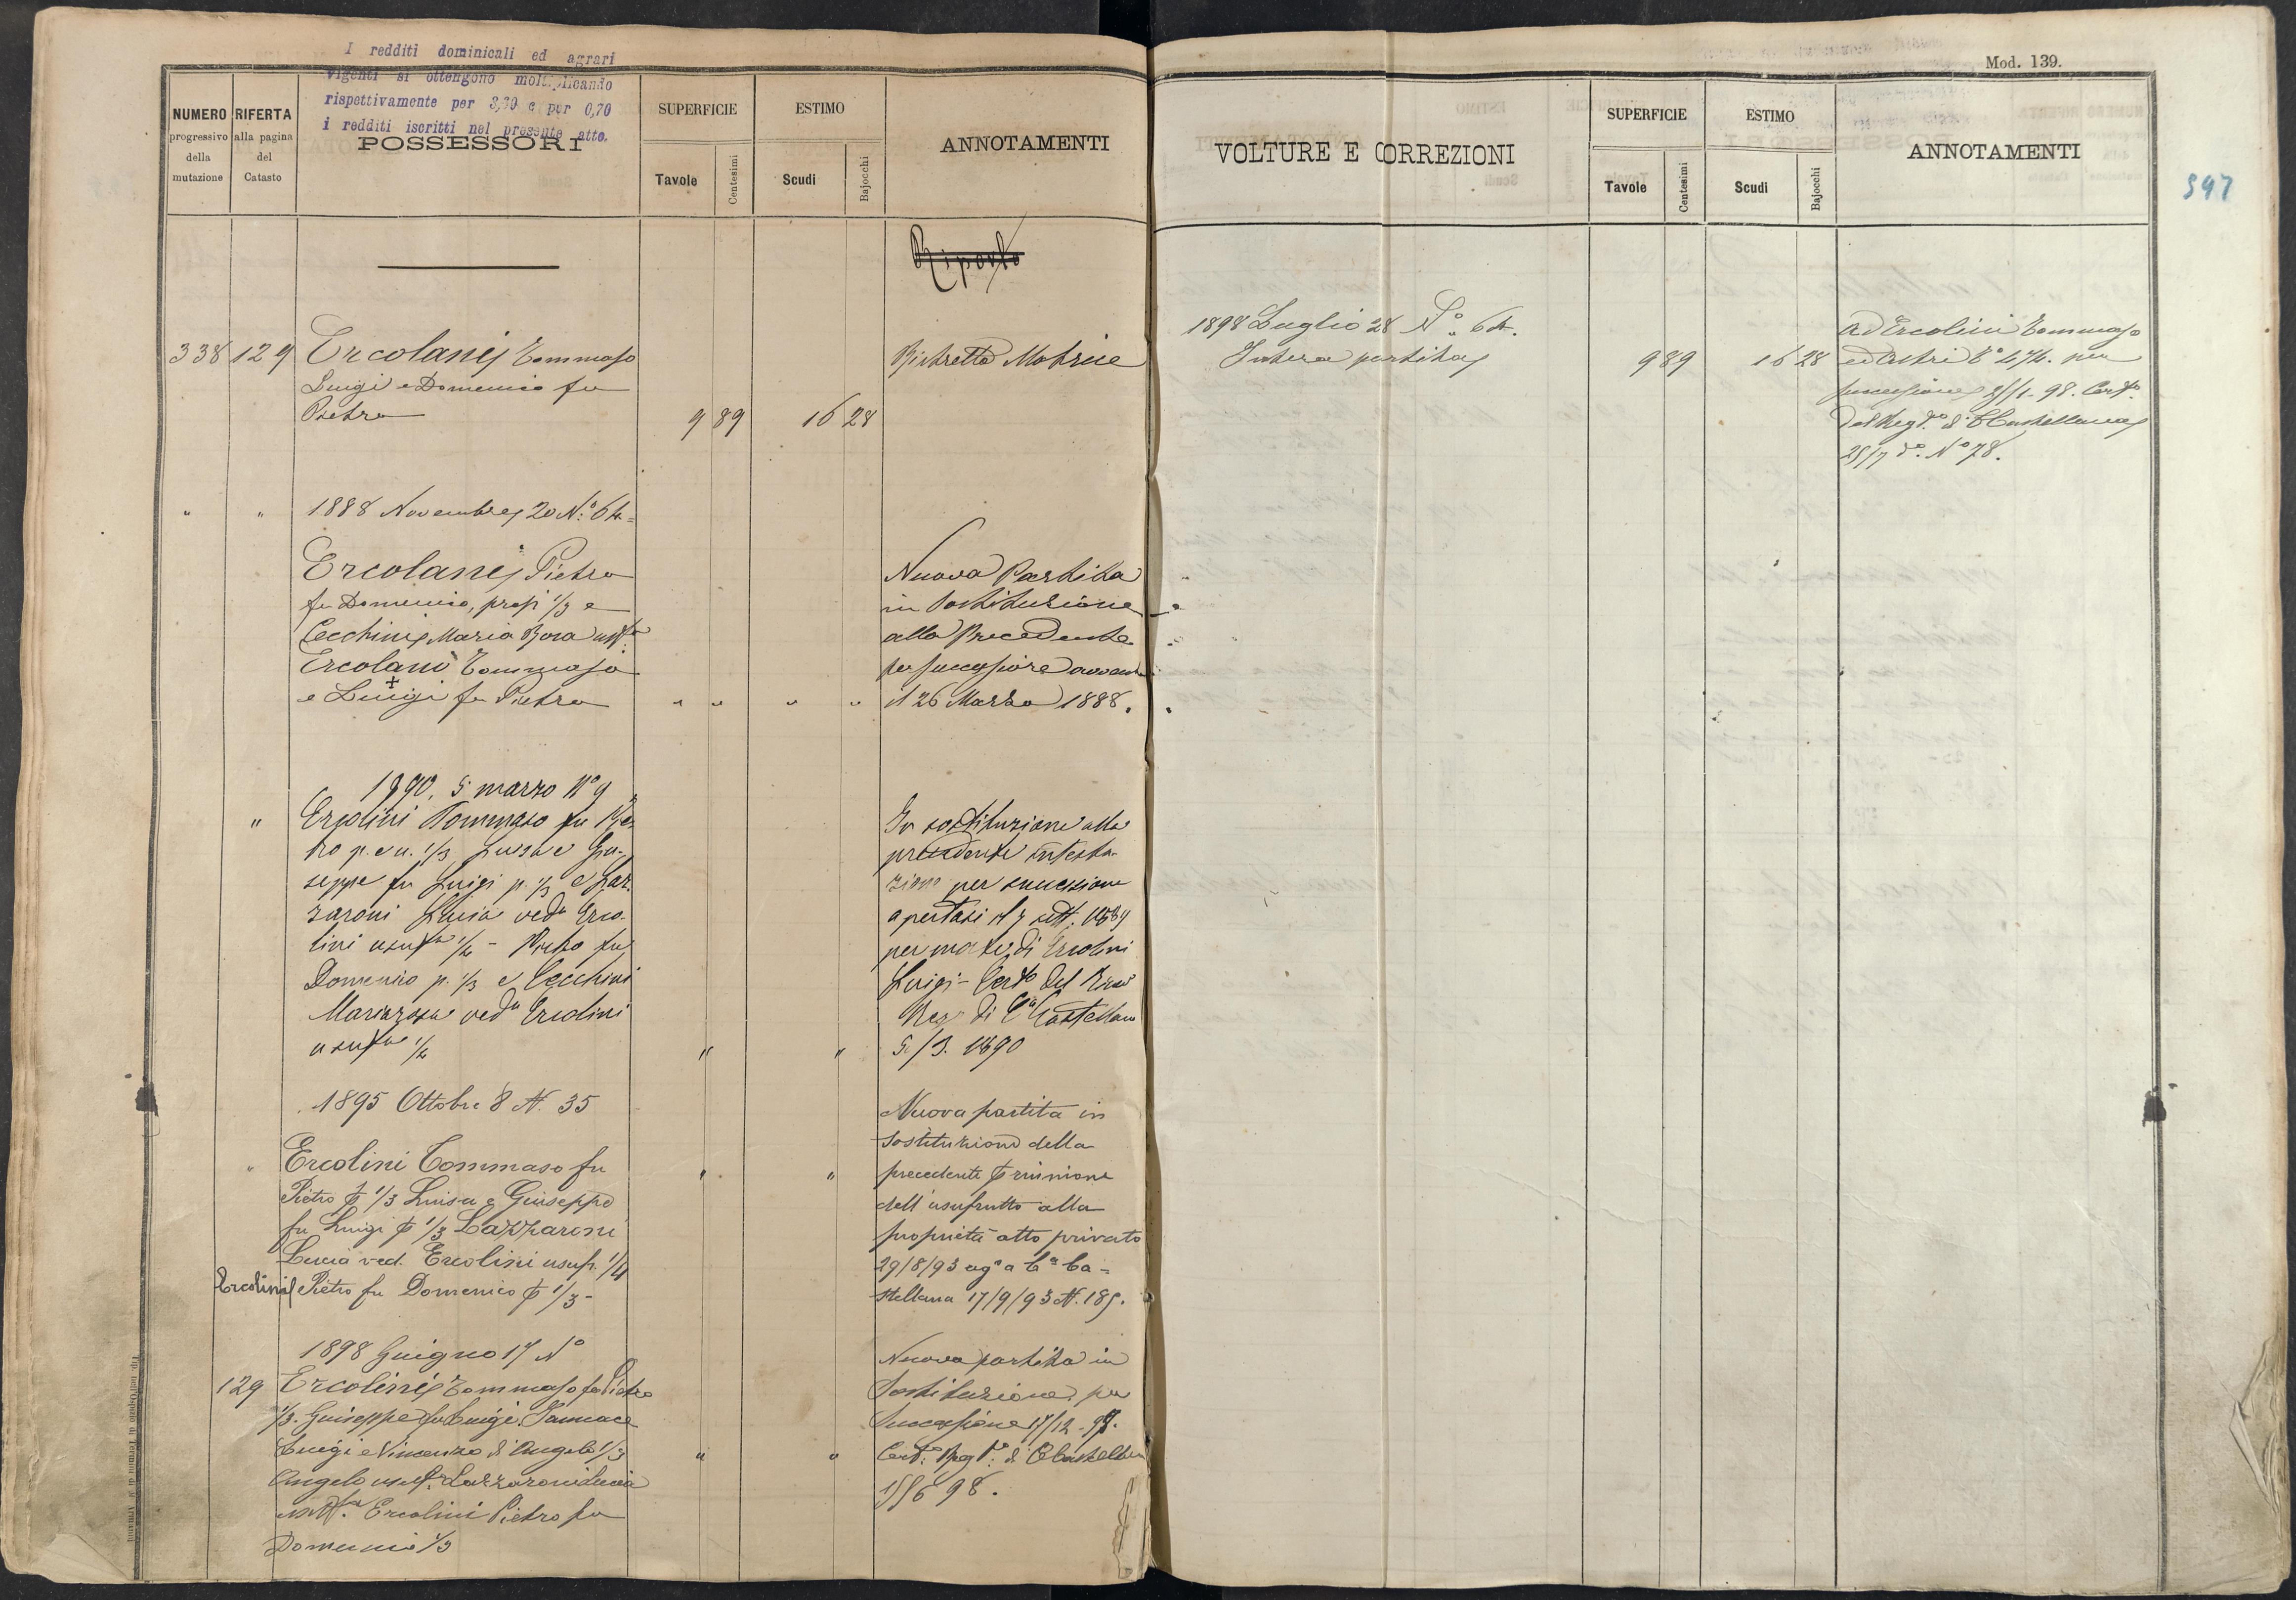 I redditi dominicali ed agrari
vigenti si ottengono moltiplicando
rispettivamente per 3,30 e per 0,70
i redditi iscritti nel presente atto.
NUMERO
progressivo
della
mutazione
RIFERTA
alla pagina
del
Catasto
POSSESSORI
SUPERFICIE
Tavole
Centesimi
ESTIMO
Scudi
Bajocchi
ANNOTAMENTI
Riporto
338 129 Ercolani Tommaso
Luigi e Domenico fu
Pietro
9 89 16 28
Matrice
" " 1888 Novembre 20 N.º 64 =
Ercolani Pietro
fu Domenico, prop 1/3 e
Cecchini Maria Rosa
Ercolani Tommaso
e Luigi fu Pietro
" " " "
Nuova Partita
in Sostituzione
alla Precedente
per successione
il 26 Marzo 1888.
1890, 5 marzo Nº 9
" Ercolini Tommaso fu Pie-
tro p. e u. 1/3 Luisa e Giu-
seppe fu Luigi p. 1/3 e Laz-
zaroni Lucia ved.a Erco-
lini usuf.a 1/2 - Pietro fu
Domenico p. 1/3 e Cecchini
Mariarosa ved.a Ercolini
usuf.a 1/2
" "
In sostituzione alla
precedente intesta-
zione per successione
apertasi il 7 sett. 1889
per morte di Ercolini
Luigi - Cert.o del
di C.a Castellana
5/3. 1890
1895 Ottobre 8 N. 35
" Ercolini Tommaso fu
Pietro p 1/3 Luisa e Giuseppe
fu Luigi p 1/3 Lazzaroni
Lucia ved. Ercolini usuf. 1/4
Ercolini Pietro fu Domenico p 1/3 -
" "
Nuova partita in
sostituzione della
precedente p riunione
dell'usufrutto alla
proprietà atto privato
29/8/93 a C.a Ca =
stellana 17/9/93 N. 185.
1898 Giugno 17 Nº
129 Ercolini Tommaso fu Pietro
1/3. Giuseppe fu Luigi.
Luigi e Vincenzo di Angelo 1/3
Angelo usuf. Lazzaroni Lucia
Ercolini Pietro fu
Domenico 1/3
" "
Nuova partita in
Sostituzione, per
Successione 17/12 - 97.
98.
Mod. 139.
VOLTURE E CORREZIONI
SUPERFICIE
Tavole
Centesimi
ESTIMO
Scudi
Bajocchi
ANNOTAMENTI
597
1898 Luglio 28 Nº. 64.
Intera partita
9 89 16 28
Ad Ercolini Tommaso
ed Altri 474. per
successione 98. Cert.o
del Reg.o di C Castellana
25/7 d.o Nº 78.